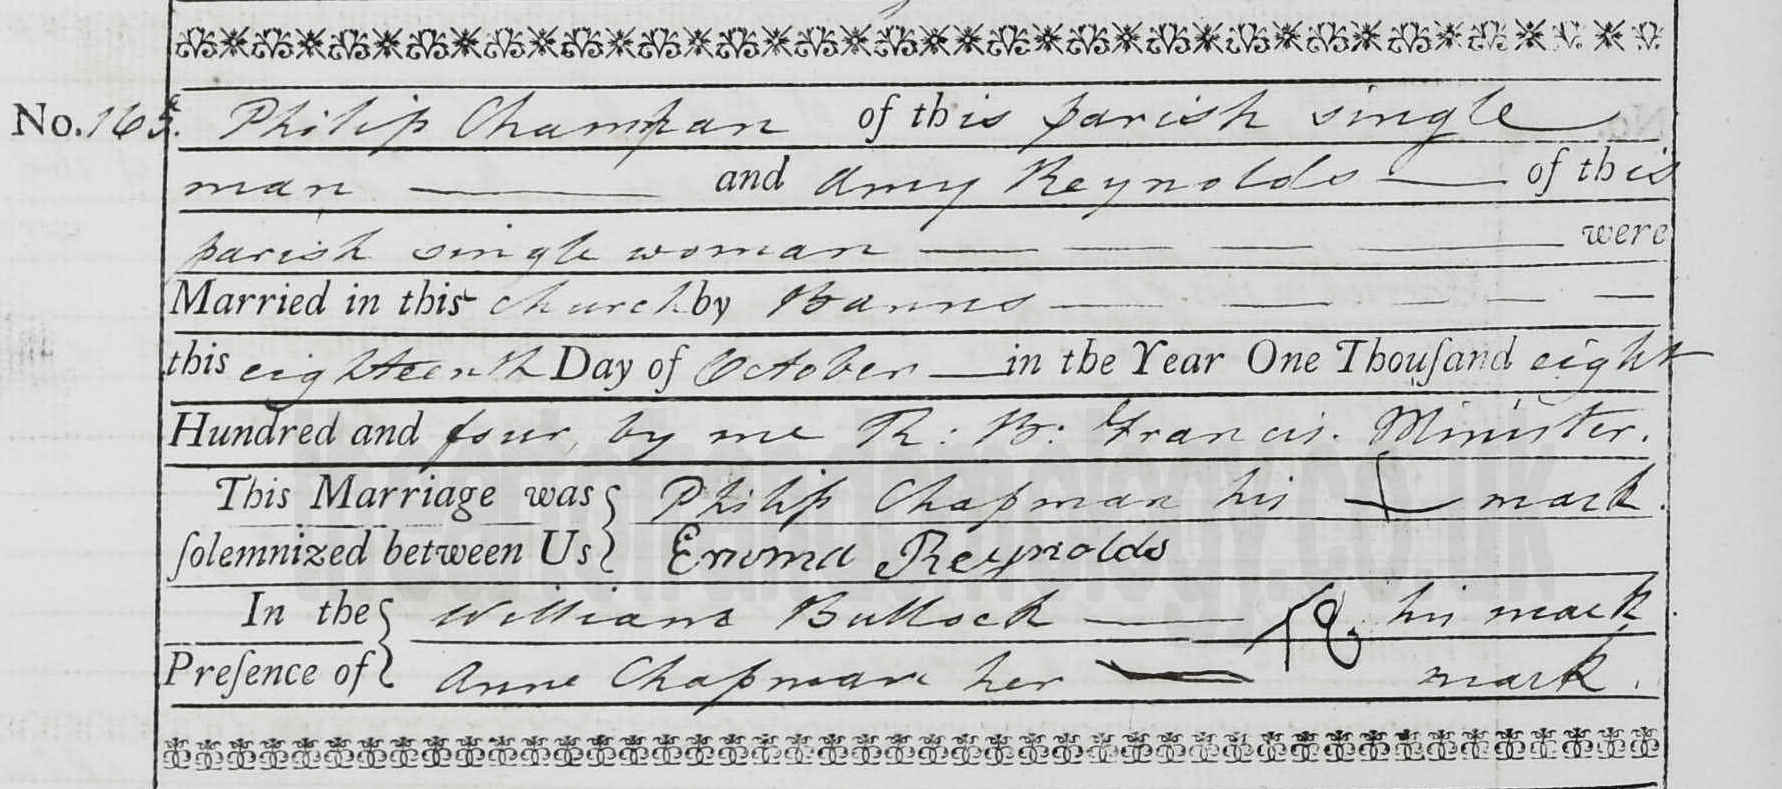 No. 165. Philip Champan of this parish single
man and Amy Reynolds of this
parish single woman were
Married in this church by Banns
this eighteenth Day of October in the Year One Thouſand eight
Hundred and four, by me R. B. Francis. Minister.
This Marriage was Philip Chapman his mark.
ſolemnized between Us Emma Reynolds
In the William Bullock his mark.
Preſence of Anne Chapman her mark.